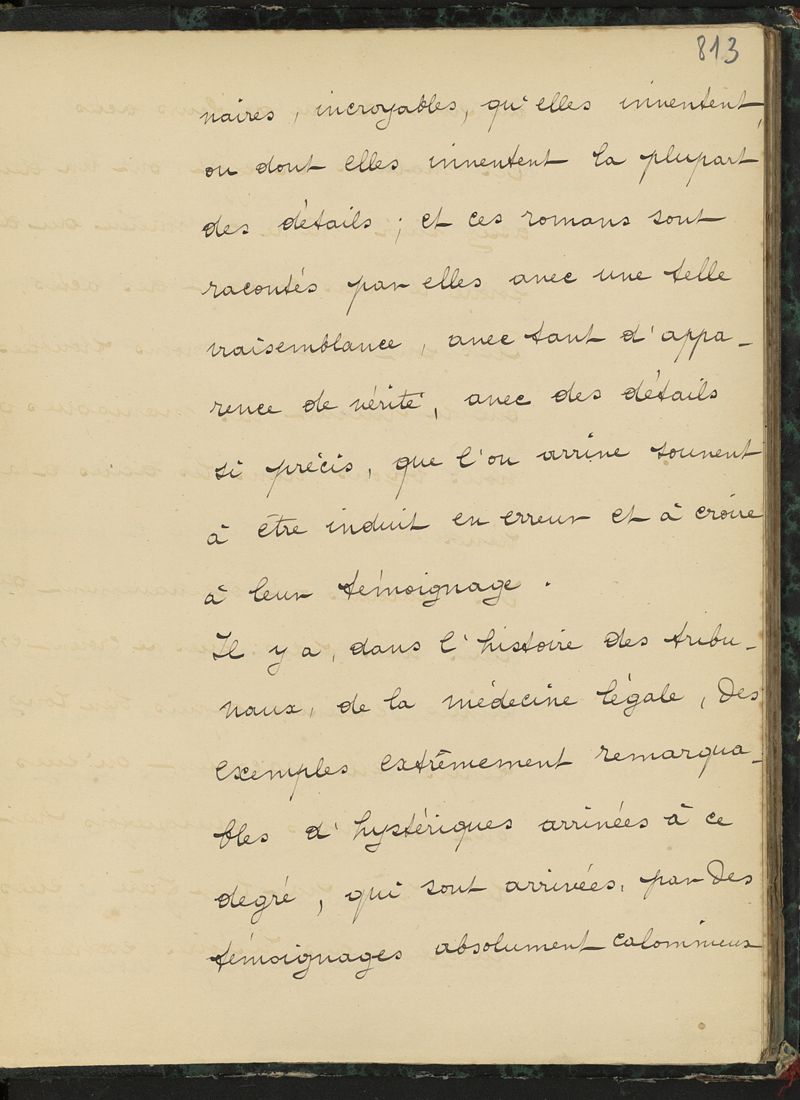 813
naires, incroyables, qu'elles inventent,
ou dont elles inventent la plupart
des détails ; et ces romans sont
racontés par elles avec une telle
vraisemblance, avec tant d'appa-
rence de vérité, avec des détails
si précis, que l'on arrive souvent
à être induit en erreur et à croire
à leur témoignage.
Il y a, dans l'histoire des tribu-
naux, de la médecine légale, des
exemples extrêmement remarqua-
bles d'hystériques arrivées à ce
degré, qui sont arrivées, par des
témoignages absolument calomnieux